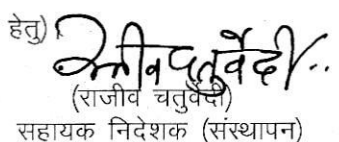 हेतु)।
राजीव चतुर्वेदी..
(राजीव चतुर्वेदी)
सहायक निदेशक (संस्थापन)